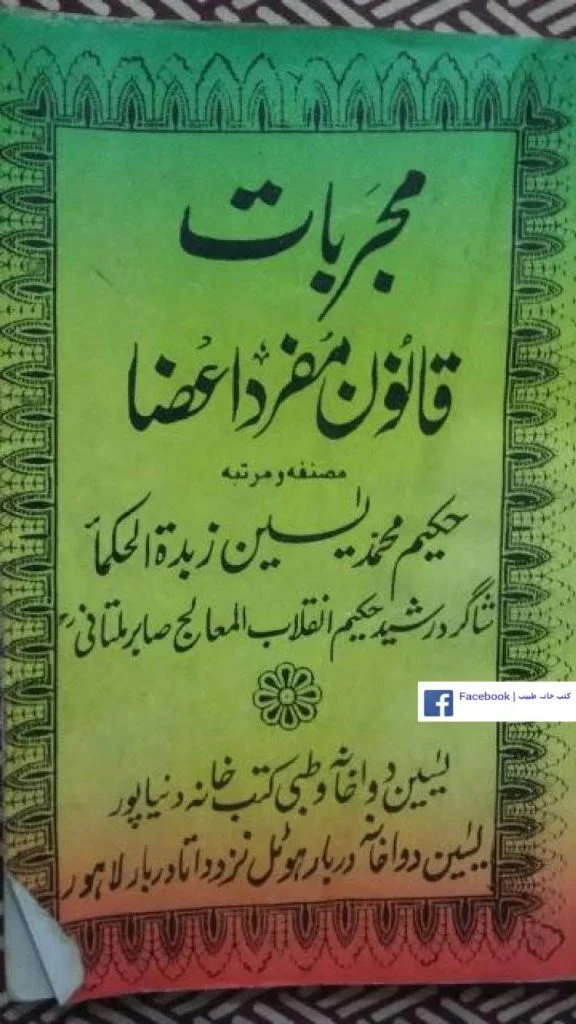 مجربات
قانون مفرد اعضا
مصنفه و مرتبه
حکیم محمد یٰسین زبدة الحکمأ
شاگرد رشید حکیم انقلاب المعالج صابر ملتانیؒ
Facebook | کتب خانہ طبیب
یٰسین دواخانہ و طبی کتب خانہ دنیاپور
یٰسین دواخانہ دربار ہوٹل نزد داتا دربار لاہور